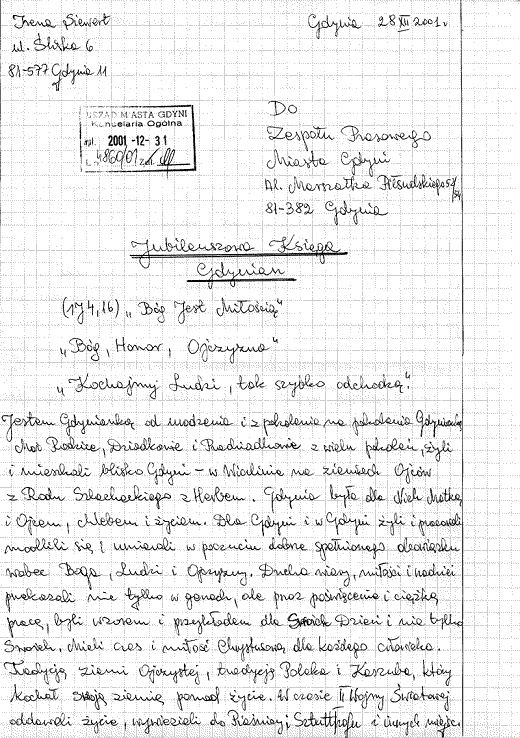 Irena Siewert
ul. Śliska 6
81-577 Gdynia 11
Gdynia 28 XII 2001 r
URZĄD MIASTA GDYNI
Kancelaria Ogólna
wpł. 2001-12-31
Do
Zespołu Prasowego
Miasta Gdyni
Al. Marszałka Piłsudskiego 52/54
81-382 Gdynia
Jubileuszowa Księga
Gdynian
(1J 4,16) „Bóg Jest Miłością"
„Bóg, Honor, Ojczyzna"
„Kochajmy Ludzi, tak szybko odchodzą."
Jestem Gdynianką od urodzenia i z pokolenia na pokolenia Gdynianką
Moi Rodzice, Dziadkowie i Pradziadkowie z wielu pokoleń, żyli
i mieszkali blisko Gdyni – w Wiczlinie na ziemiach Ojców
z Rodu Szlacheckiego z Herbem. Gdynia była dla Nich Matką
i Ojcem, chlebem i życiem. Dla Gdyni i w Gdyni żyli i pracowali
modlili się i umierali w poczuciu dobrze spełnionego obowiązku
wobec Boga, Ludzi i Ojczyzny, Ducha wiary, miłości i nadziei
przekazali nie tylko w genach, ale przez poświęcenie i ciężką
pracę, byli wzorem i przykładem dla Swoich Dzieci i nie tylko
Swoich, Mieli czas i miłość Chrystusową dla każdego człowieka.
Tradycją ziemi Ojczystej, tradycją Polaka i Kaszuba, który
kochał swoją ziemię ponad życie. W czasie II Wojny Światowej
oddawali życie, wywiezieni do Piaśnicy i Sztutthofu i innych miejsc.